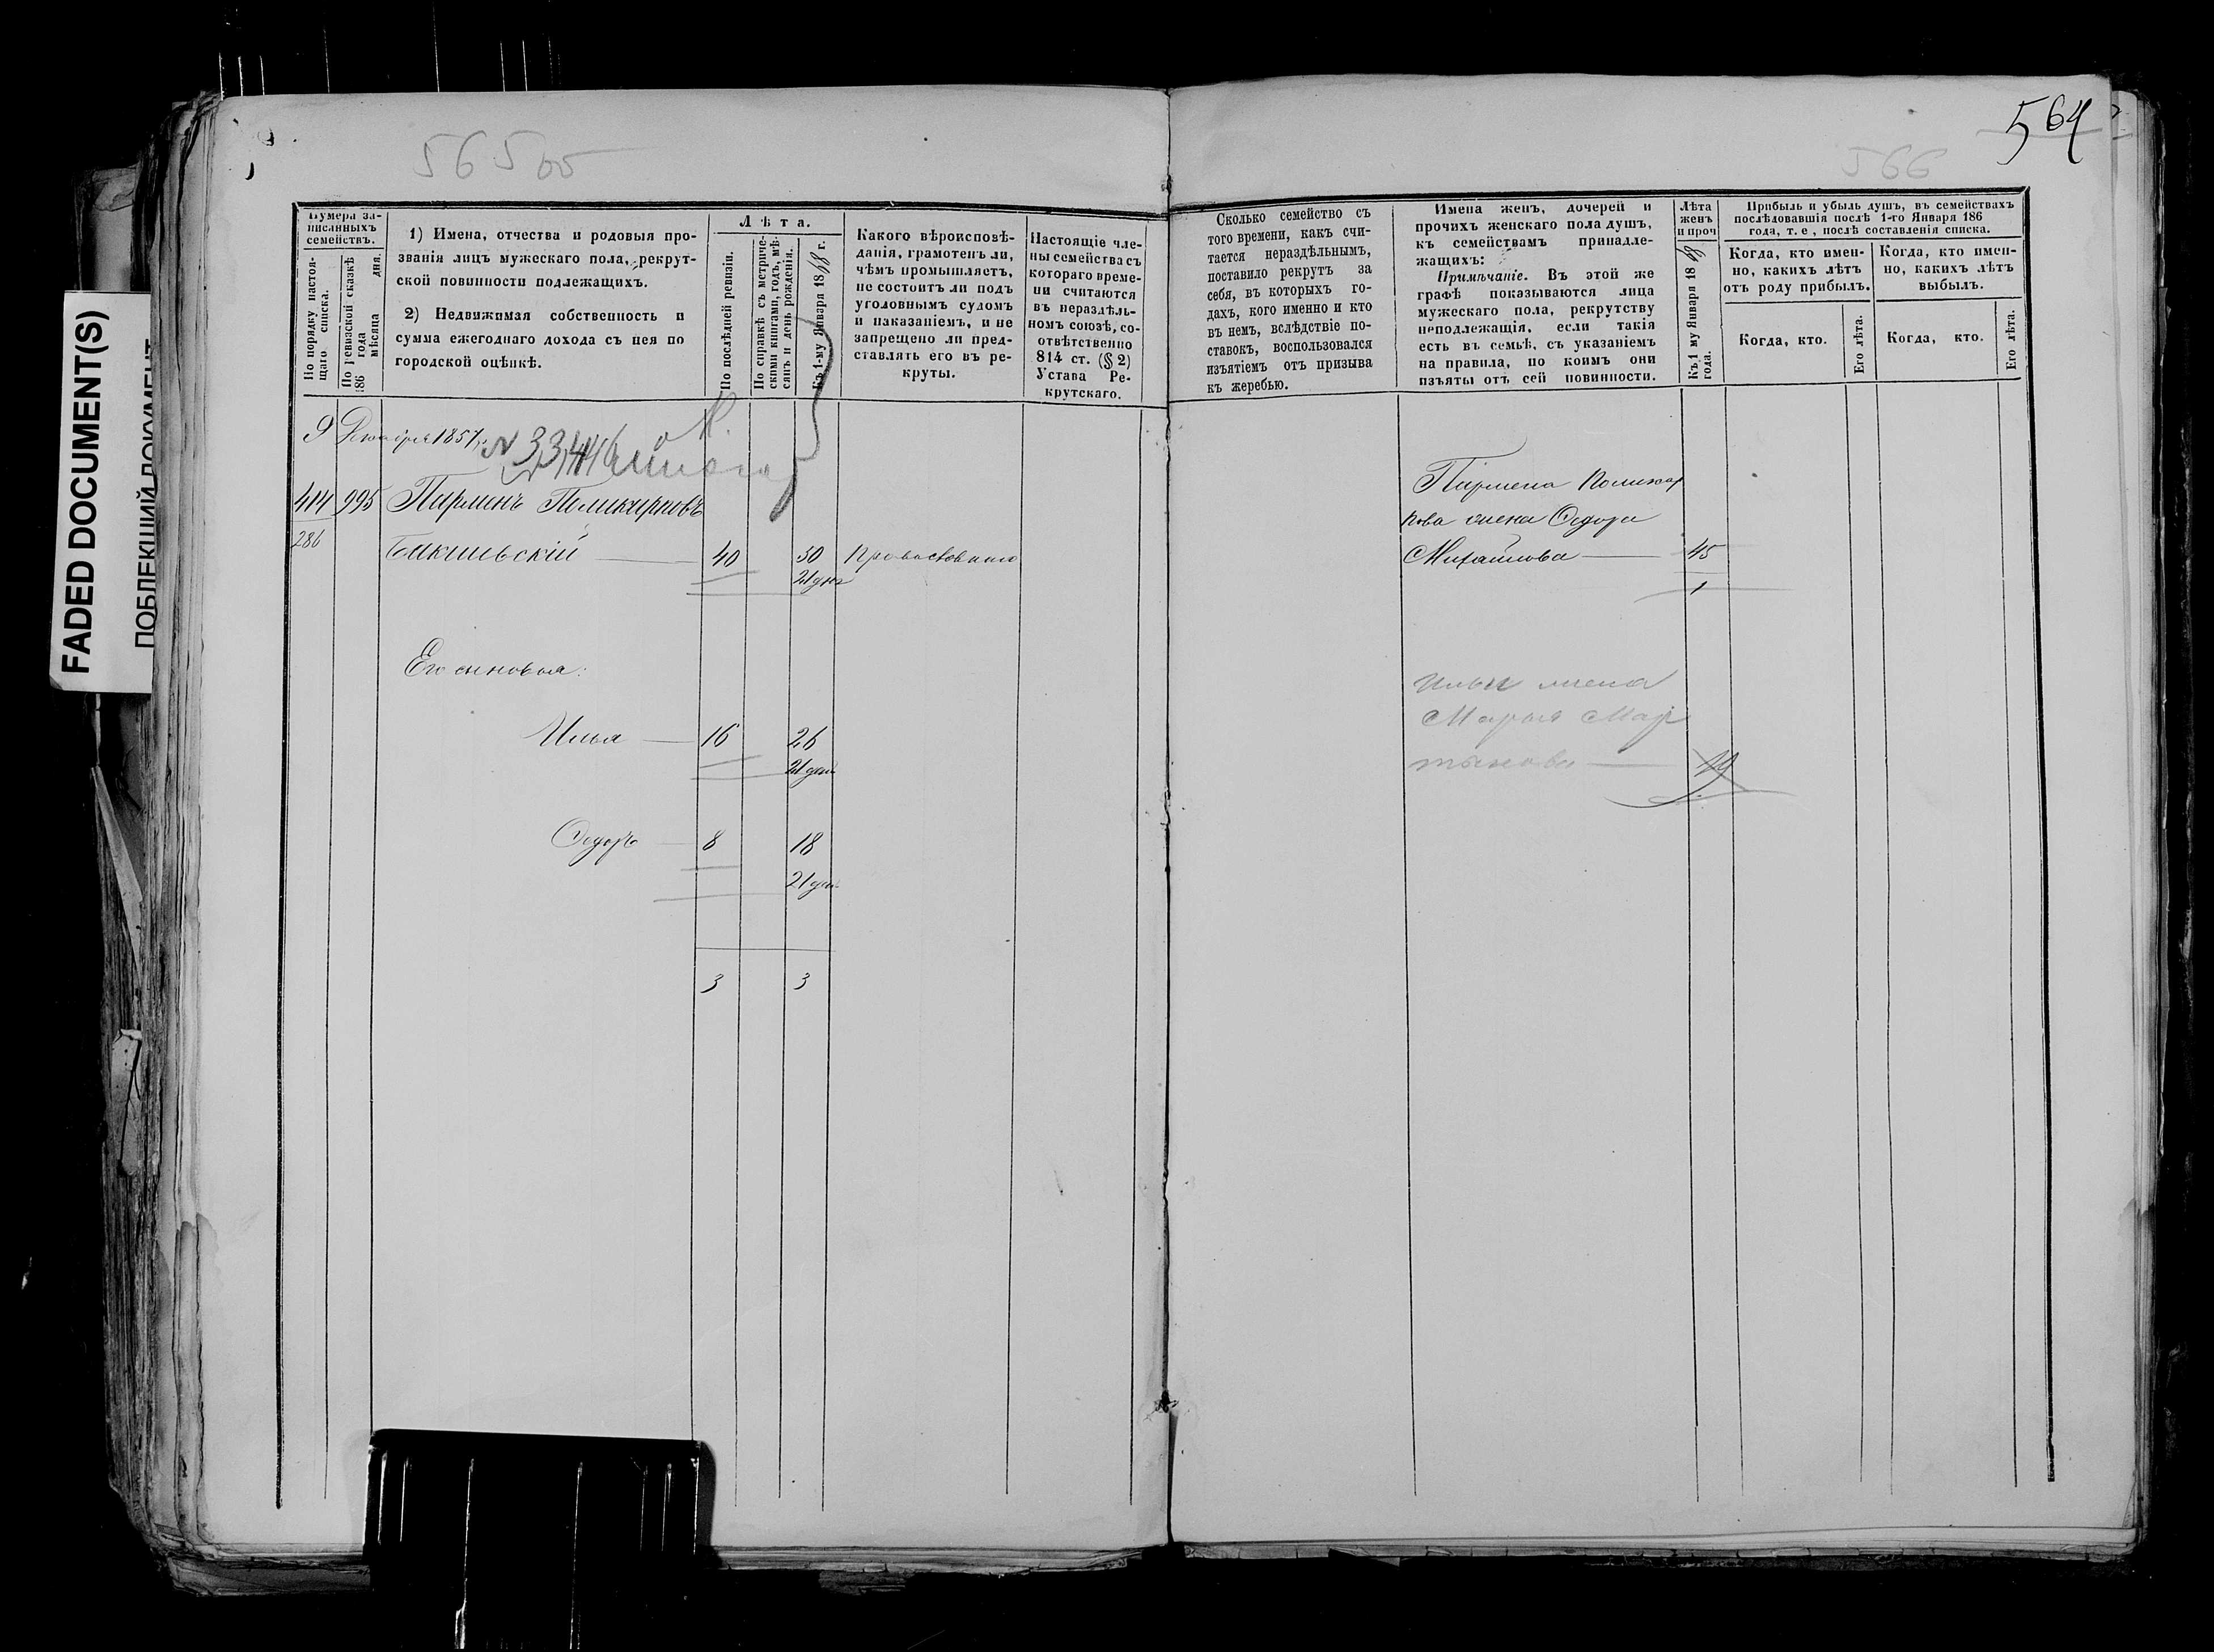 FADED DOCUMENT(S)
565
566
564
Нумера за-
писанныхъ
семействъ.
По порядку настоя-
щаго списка.
По ревизской сказкѣ
186 года
мѣсяца дня.
1) Имена, отчества и родовыя про-
званія лицъ мужескаго пола, рекрут-
ской повинности подлежащихъ.
2) Недвижимая собственность и
сумма ежегоднаго дохода съ нея по
городской оцѣнкѣ.
Лѣта.
По послѣдней ревизіи.
По справкѣ съ метриче-
скими книгами, годъ, мѣ-
сяцъ и день рожденія.
Къ 1-му Января 1868 г.
Какого вѣроисповѣ-
данія, грамотенъ ли,
чѣмъ промышляетъ,
не состоитъ ли подъ
уголовнымъ судомъ
и наказаніемъ, и не
запрещено ли пред-
ставлять его въ ре-
круты.
Настоящіе чле-
ны семейства съ
котораго време-
ни считаются
въ нераздѣль-
номъ союзѣ, со-
отвѣтственно
814 ст. (§ 2)
Устава Ре-
крутскаго.
Сколько семейство съ
того времени, какъ счи-
тается нераздѣльнымъ,
поставило рекрутъ за
себя, въ которыхъ го-
дахъ, кого именно и кто
въ немъ, вслѣдствіе по-
ставокъ, воспользовался
изъятіемъ отъ призыва
къ жеребью.
Имена женъ, дочерей и
прочихъ женскаго пола душъ,
къ семействамъ принадле-
жащихъ:
Примѣчаніе. Въ этой же
графѣ показываются лица
мужескаго пола, рекрутству
неподлежащія, если такія
есть въ семьѣ, съ указаніемъ
на правила, по коимъ они
изъяты отъ сей повинности.
Лѣта
женъ
и проч
Къ 1 му Января 1868
года.
Прибыль и убыль душъ, въ семействахъ
послѣдовавшія послѣ 1-го Января 186
года, т. е., послѣ составленія списка.
Когда, кто имен-
но, какихъ лѣтъ
отъ роду прибылъ.
Когда, кто имен-
но, какихъ лѣтъ
выбылъ.
Когда, кто.
Его лѣта.
Когда, кто.
Его лѣта.
9 Декабря 1857 г.
414 995 Пирминъ Поликарповъ
286
Бакшевскій 40 50 Православнаго
21 дня
Его сыновья:
Илья 16 26
21 дня
Ѳедоръ 8 18
21 дня
3 3
Пирмена Поликар
пова жена Ѳедора
Михайлова 45
1
Ильи жена
Марья Мар
тынова 19